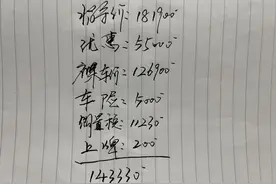 指导价: 181900
优惠: 55000
裸车价: 126900
车险: 5000
购置税: 11230
上牌: 200
143330